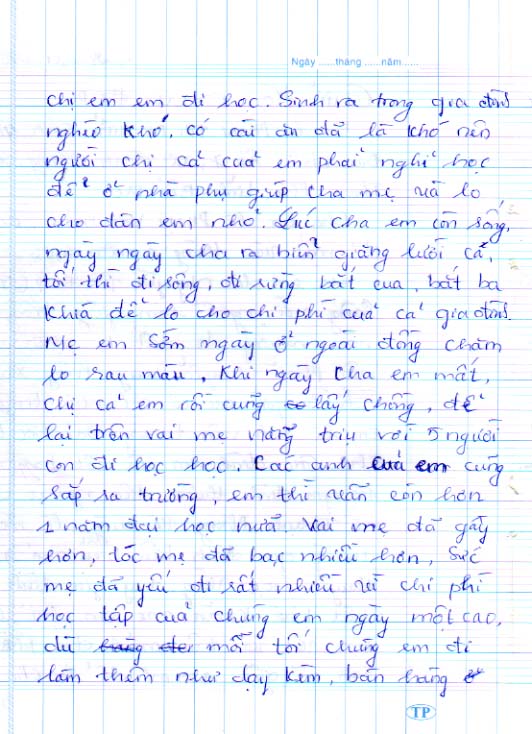 Ngày ..... tháng ..... năm .....
chị em em đi học. Sinh ra trong gia đình
nghèo khó, có cái ăn đã là khó nên
người chị cả của em phải nghỉ học
để ở nhà phụ giúp cha mẹ và lo
cho đàn em nhỏ. Lúc cha em còn sống,
ngày ngày cha ra biển giăng lưới cá,
tối thì đi sông, đi rừng bắt cua, bắt ba
khía để lo cho chi phí của cả gia đình.
Mẹ em sớm ngày ở ngoài đồng chăm
lo rau màu. Khi ngày cha em mất,
chị cả em rồi cũng lấy chồng, để
lại trên vai mẹ nặng trĩu với 5 người
con đi học học. Các anh của em cũng
sắp ra trường, em thì vẫn còn hơn
1 năm đại học nữa. Vai mẹ đã gầy
hơn, tóc mẹ đã bạc nhiều hơn, sức
mẹ đã yếu đi rất nhiều vì chi phí
học tập của chúng em ngày một cao,
dù mỗi tối chúng em đi
làm thêm như dạy kèm, bán hàng ở
TP